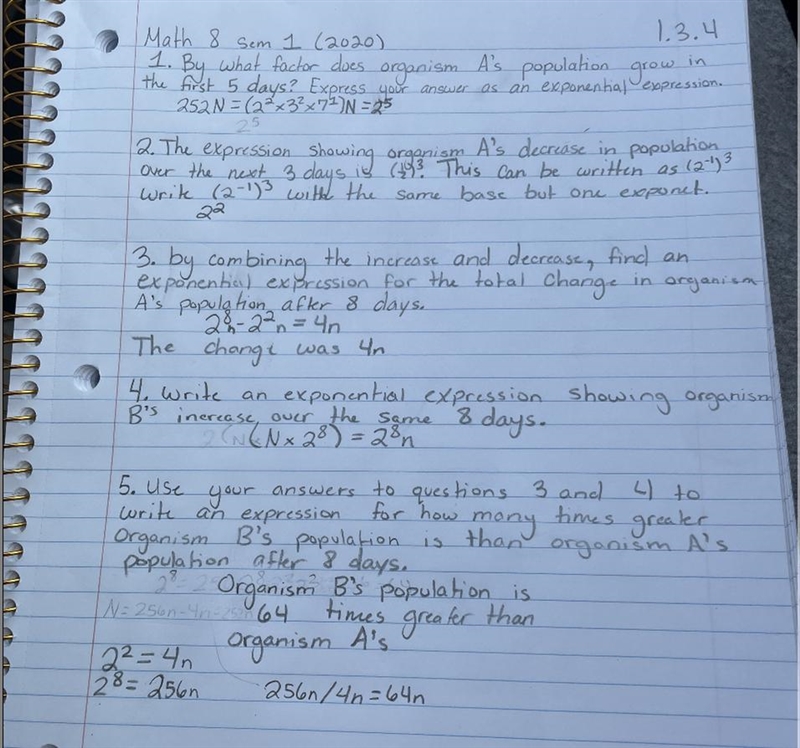 Math 8 Sem 1 (2020) 1.3.4
1. By what factor does organism A's population grow in
the first 5 days? Express your answer as an exponential expression.
252N = (2² × 3² × 7¹)N = 2⁵
2⁵
2. The expression showing organism A's decrease in population
over the next 3 days is (½)³. This can be written as (2⁻¹)³
write (2⁻¹)³ with the same base but one exponet.
2²
3. by combining the increase and decrease, find an
exponential expression for the total change in organism
A's population after 8 days.
2⁸n - 2²n = 4n
The change was 4n
4. Write an exponential expression showing organism
B's increase over the same 8 days.
(N × 2⁸) = 2⁸n
5. Use your answers to questions 3 and 4 to
write an expression for how many times greater
Organism B's population is than organism A's
population after 8 days.
Organism B's population is
64 times greater than
Organism A's
2² = 4n
2⁸ = 256n 256n/4n = 64n